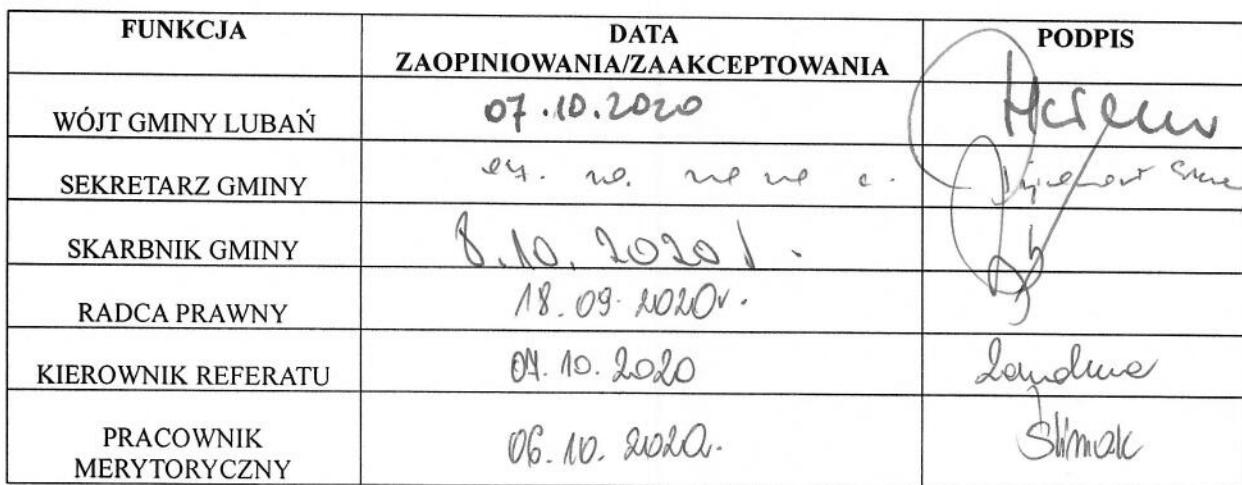 FUNKCJA
DATA
ZAOPINIOWANIA/ZAAKCEPTOWANIA
PODPIS
WÓJT GMINY LUBAŃ
07.10.2020
SEKRETARZ GMINY
SKARBNIK GMINY
8.10.2020
RADCA PRAWNY
18.09.2020r.
KIEROWNIK REFERATU
07.10.2020
PRACOWNIK
MERYTORYCZNY
06.10.2020r.
Ślimak